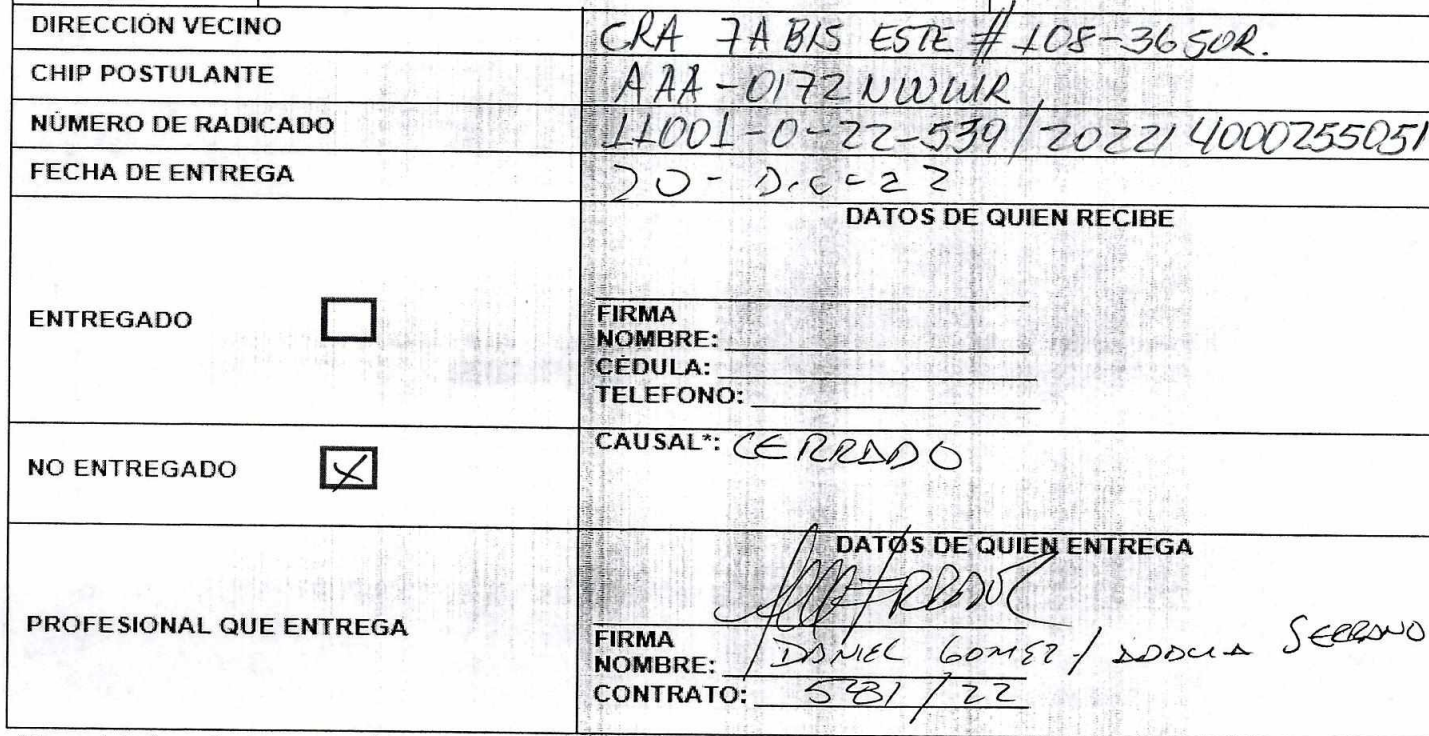 DIRECCIÓN VECINO CRA 7A BIS ESTE # 108-36 SUR.
CHIP POSTULANTE AAA-0172NWWR
NÚMERO DE RADICADO 11001-0-22-539/202214000255051
FECHA DE ENTREGA 20-Dic-22
DATOS DE QUIEN RECIBE
ENTREGADO
FIRMA
NOMBRE:
CÉDULA:
TELEFONO:
NO ENTREGADO X
CAUSAL*: CERRADO
DATOS DE QUIEN ENTREGA
PROFESIONAL QUE ENTREGA
FIRMA
NOMBRE: DANIEL GOMEZ / SERRANO
CONTRATO: 581/22